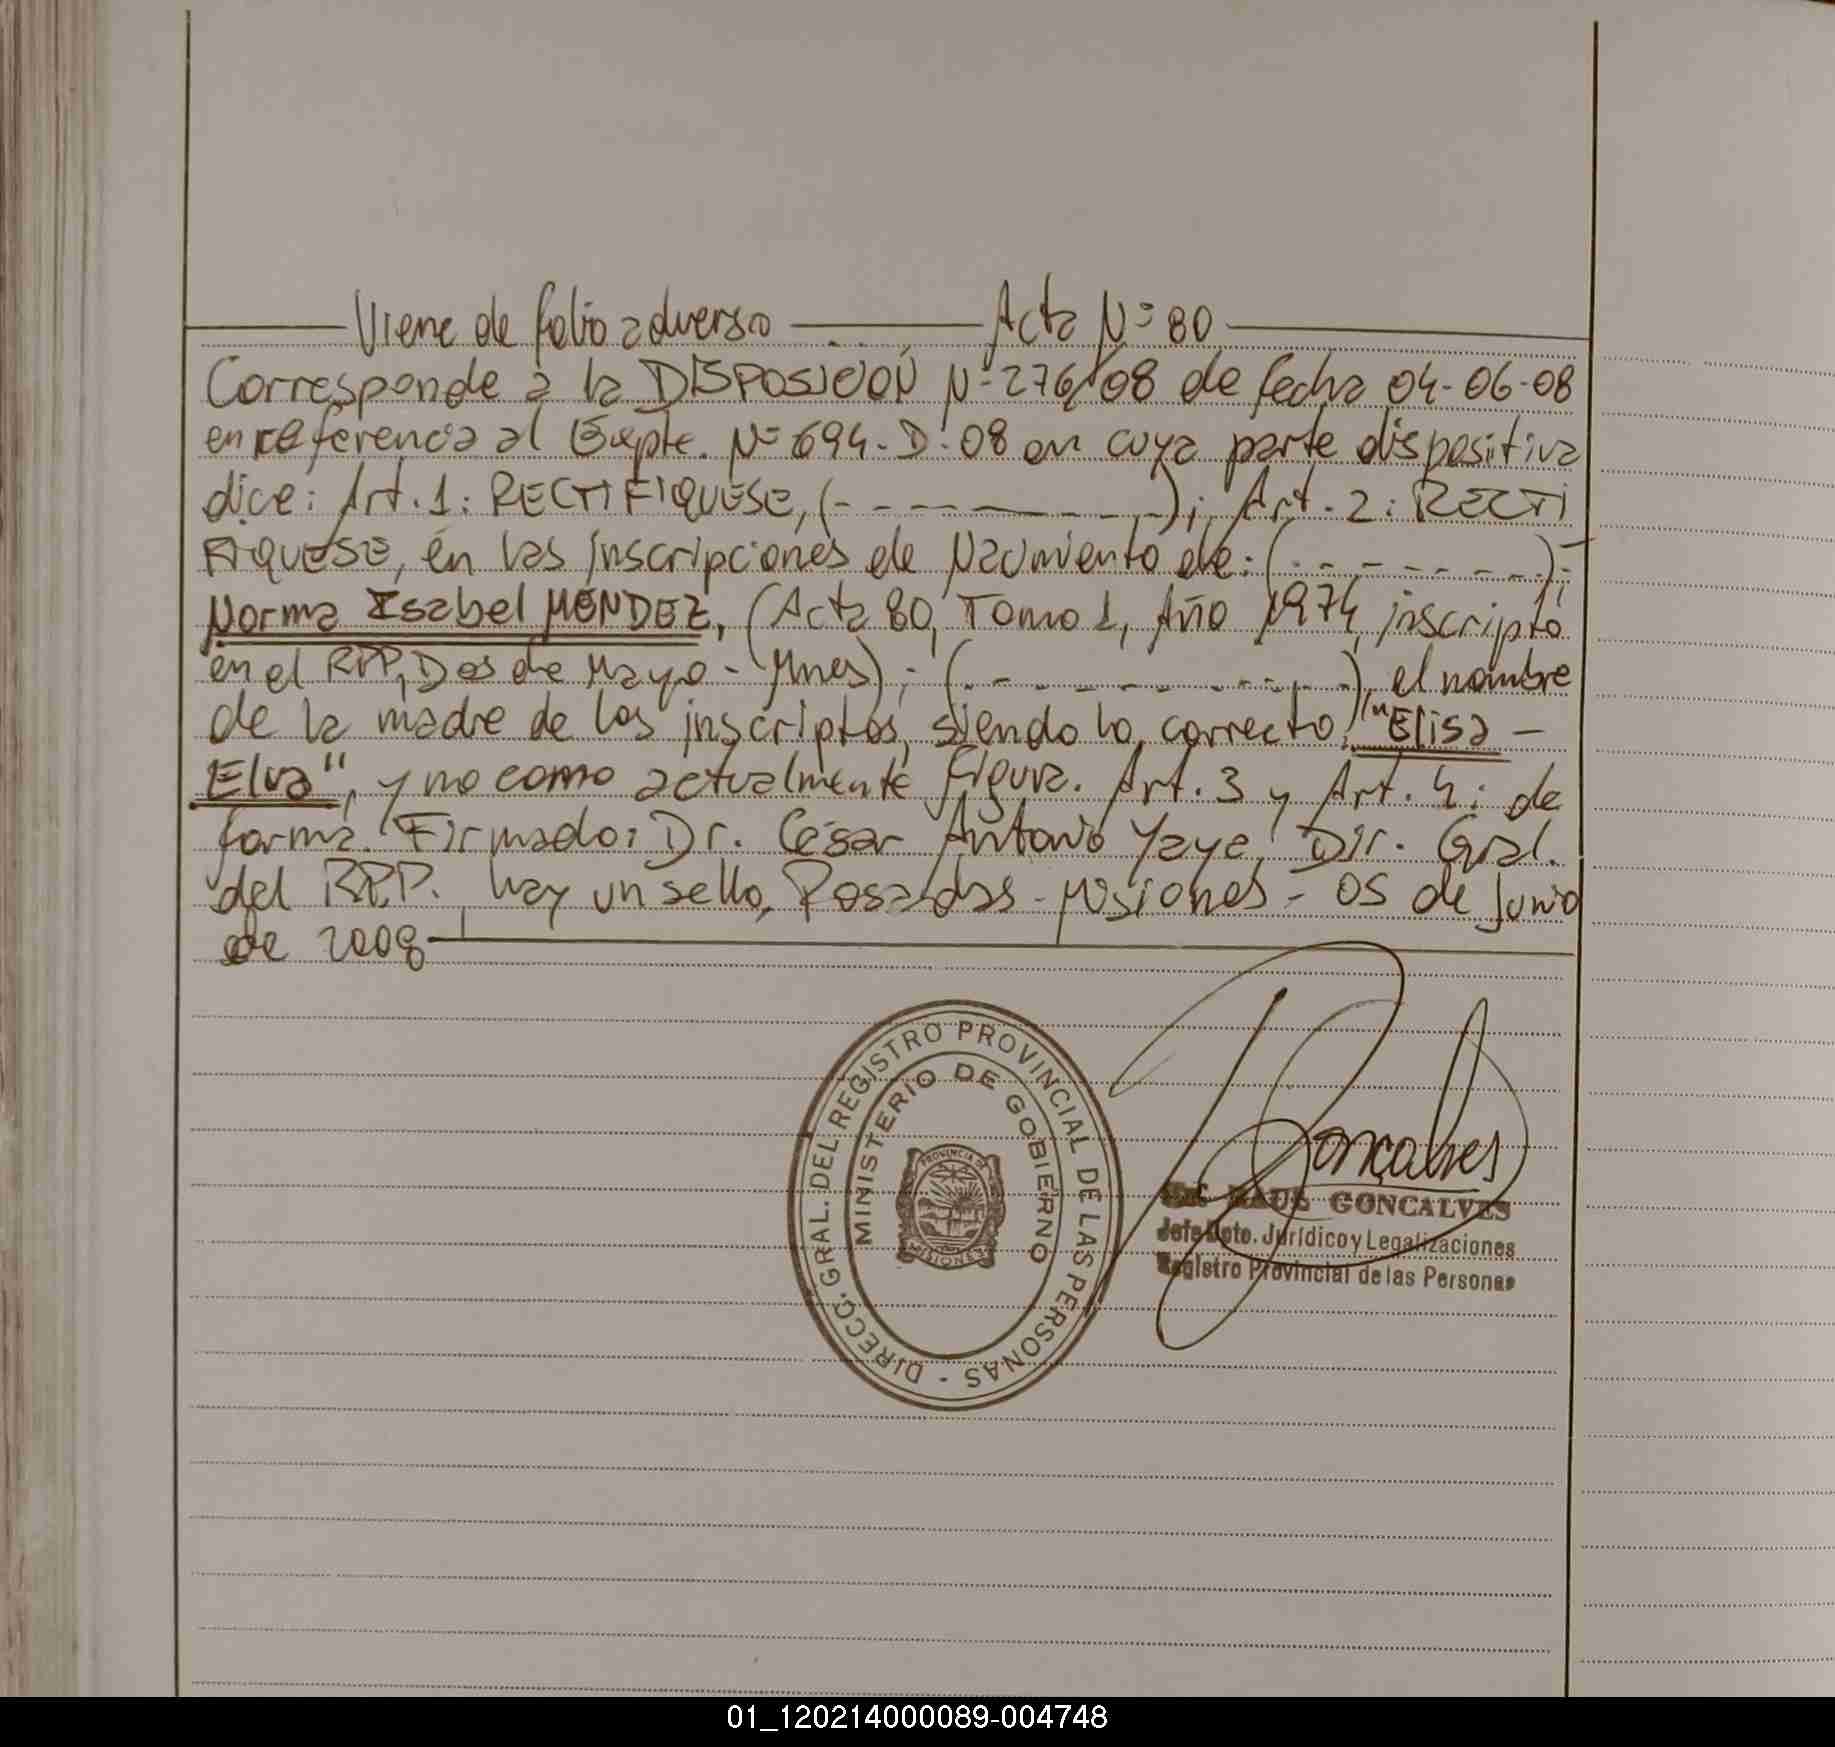 Viene de folio adverso Acta Nº 80
Corresponde a la DISPOSICIÓN Nº 276/08 de fecha 04-06-08
en referencia al Expte. Nº 694-D-08 en cuya parte dispositiva
dice: Art. 1: RECTIFIQUESE, (- - - - - - - - -); Art. 2: RECTI
FIQUESE, en las inscripciones de Nacimiento de: (- - - - - - - -);
Norma Isabel MENDEZ, (Acta 80, Tomo 1, Año 1974, inscripto
en el RPP, Dos de Mayo - Mnes); (- - - - - - - - - -), el nombre
de la madre de los inscriptos, siendo lo correcto: "Elisa -
Elva", y no como actualmente figura. Art. 3 y Art. 4: de
forma. Firmado: Dr. César Antonio Yaya, Dir. Gral.
del RPP. hay un sello, Posadas - Misiones - 05 de junio
de 2008
DIRECC. GRAL. DEL REGISTRO PROVINCIAL DE LAS PERSONAS -
MINISTERIO DE GOBIERNO
PROVINCIA DE
MISIONES
Goncalves
RAUL GONCALVES
Jefe Dpto. Jurídico y Legalizaciones
Registro Provincial de las Personas
01_120214000089-004748